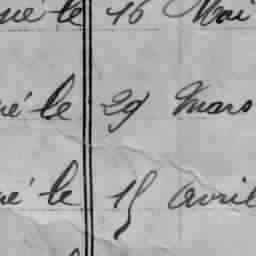 né le 16 Mai
né le 29 Mars
né le 15 avril